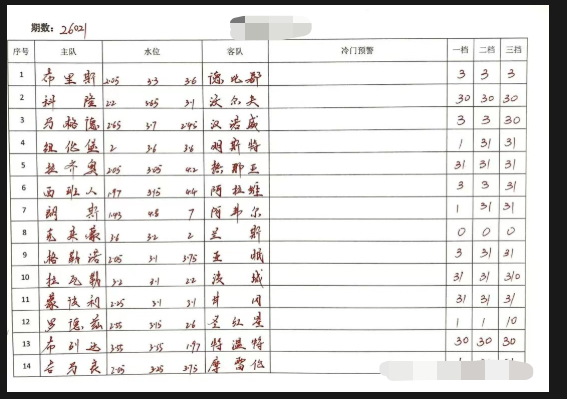 期数：26021
序号 主队 水位 客队 冷门预警 一档 二档 三档
1 布里斯 2.05 3.3 3.6 德比郡 3 3 3
2 科隆 2.2 3.65 3.1 沃尔夫 30 30 30
3 马格德 2.65 3.7 2.45 汉诺威 3 3 30
4 纽伦堡 2 3.6 3.6 明斯特 1 31 31
5 拉齐奥 2.05 3.05 4.2 热那亚 31 31 31
6 西班人 1.97 3.15 4.4 阿拉维 3 3 31
7 朗斯 1.43 4.8 7 阿弗尔 1 31 31
8 克莱蒙 3.6 3.2 2 兰斯 0 0 0
9 格勒诺 2.05 3.1 3.75 亚眠 3 31 31
10 拉瓦勒 3.2 3.1 2.2 31 31 310
11 蒙彼利 2.25 3.1 3.1 31 31 31
12 罗德兹 2.55 3.15 2.6 圣红星 1 1 10
13 布列达 3.55 3.55 1.97 特温特 30 30 30
14 吉马良 2.05 3.25 3.75 摩雷伦